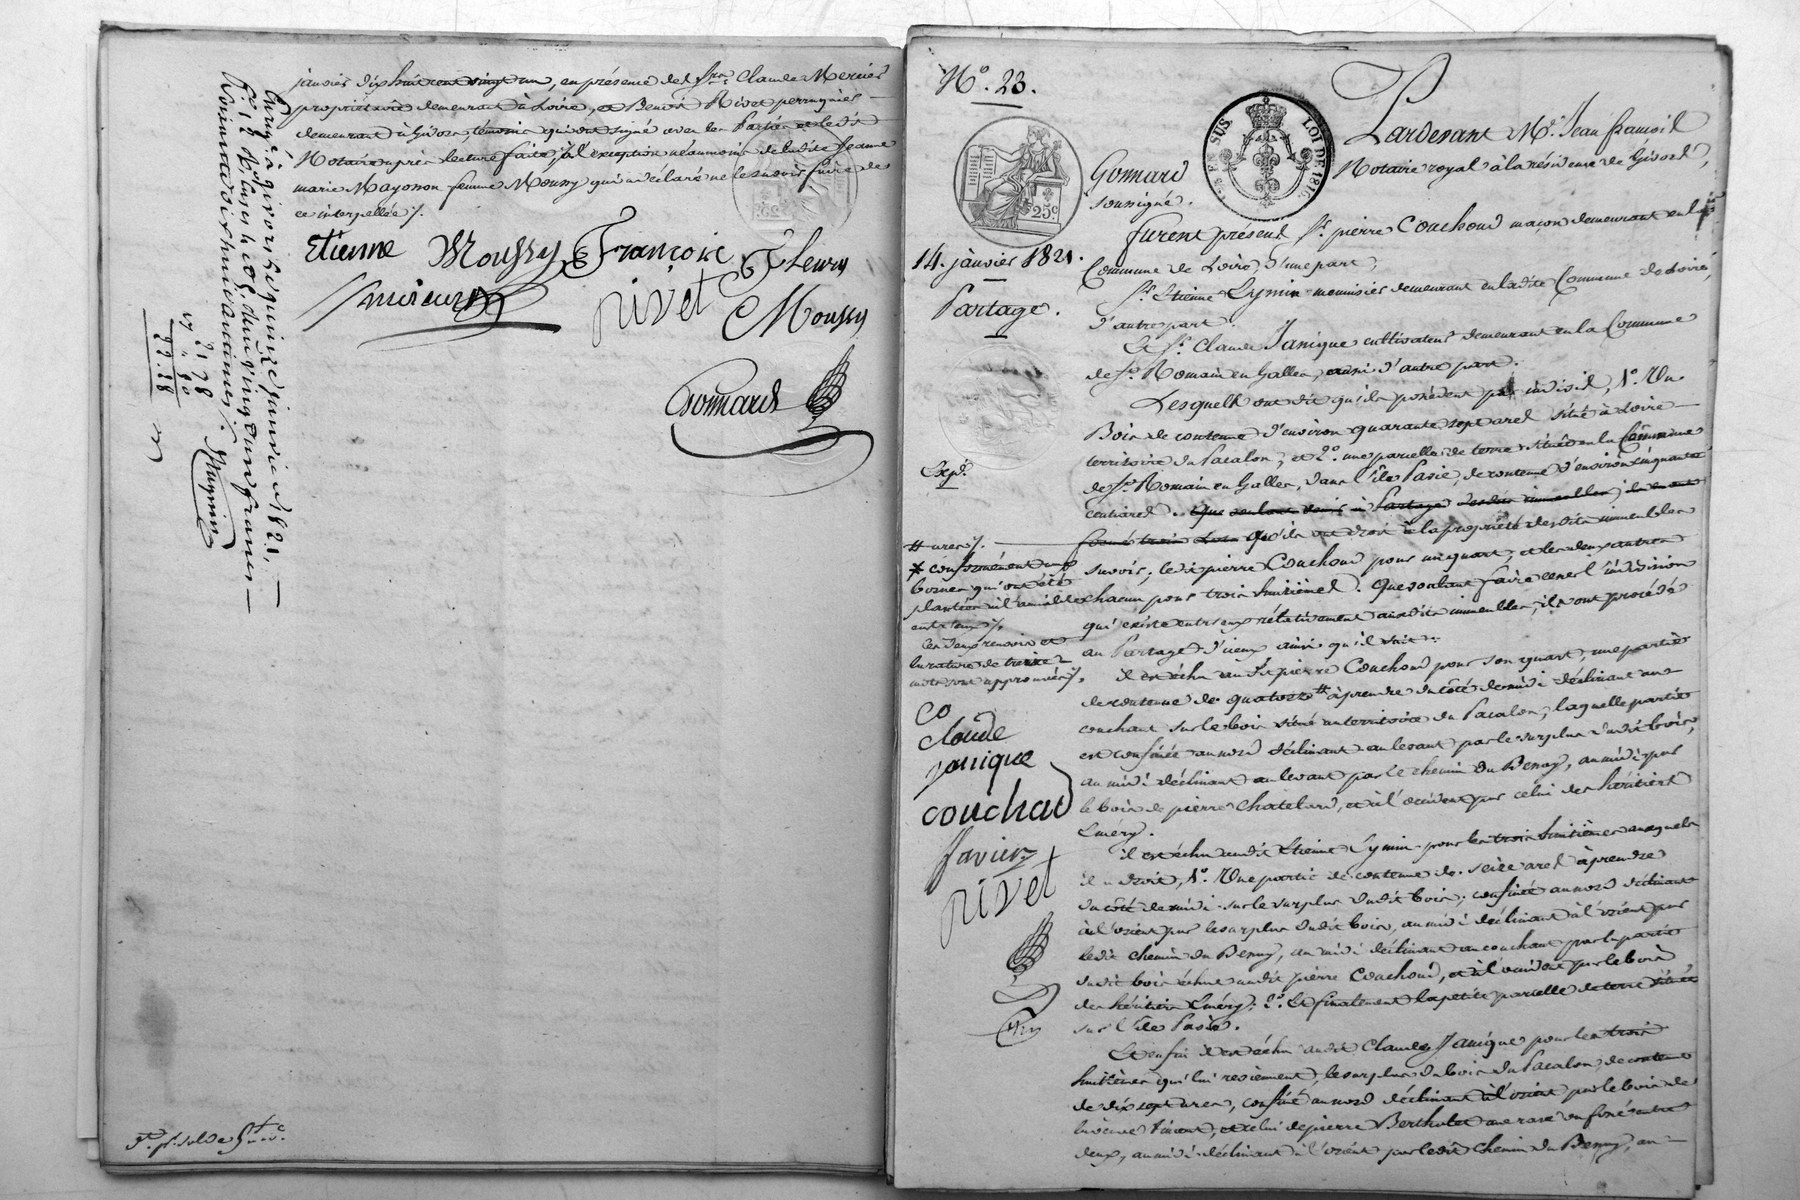 janvier dix huit cent vingt un, en présence de Srs Claude Mercier
propriétaire demeurant à Loire, et Benoit Rivet perruquier
demeurant à Givors, témoins qui ont signé avec les Parties et le dit
Notaire après lecture faite, à l'exception néanmoins de ladite Jeanne
marie Mayonon femme Moussy qui a déclaré ne le savoir faire de
ce interpellée /.
Etienne Moussy François Fleury
rivet Moussy
Gonnard
Enregt. à givors le quinze janvier 1821,
f° 18
vingt un francs
dix huit centimes /.
21 78
22.18
N°. 23.
25c
SUS. LOI DE 1816
Pardevant Me. Jean François
Gonnard Notaire royal à la résidence de Givors,
soussigné.
furent présens Sr. pierre Couchoud maçon demeurant en la
14. janvier 1821.
Commune de Loire, d'une part,
Sr. Etienne Lymin menuisier demeurant en la dite Commune de Loire,
Partage.
d'autre part.
Et Sr. Claude Janique cultivateur demeurant en la Commune
de St. Romain en Galles, aussi d'autre part.
Lesquels ont dit qu'ils possèdent par indivis, 1°. Un
Bois de contenue d'environ quarante sept ares situé à Loire
territoire du Pacalon; et 2°. une parcelle de terre située en la Commune
Expé.
de St. Romain en Galles, dans l'île Pavie, de contenue d'environ cinquante
centiares. Que voulant venir à Partage desdits immeubles, ils en ont
formé trois Lots Qu'ils ont droit à la propriété desdits immeubles
savoir; ledit pierre Couchoud pour un quart, et les deux autres
chacun pour trois huitièmes. Que voulant faire cesser l'indivision
qui existe entr'eux rélativement auxdits immeubles, ils ont procédé
au Partage d'iceux ainsi qu'il suit:
# ares /.
* conformément aux
bornes qui ont été
plantées à l'amiable
entr'eux /.
Les deux renvois et
la rature de treize
mots sont approuvés /.
il est échu audit pierre Couchoud pour son quart, une partie
de contenue de quatorze # à prendre du côté de midi déclinant au
couchant sur le bois situé au territoire du Pacalon; laquelle partie
est confinée au nord déclinant au levant par le surplus dudit bois,
au midi déclinant au levant par le chemin du Benay, au midi par
le bois de pierre Chatelard, et à l'occident par celui des héritiers
Lméry.
CO
claude
janique
couchoud
favier
rivet
il est échu audit Etienne Lymin pour les trois huitièmes auxquels
il a droit, 1°. Une partie de contenue de seize ares à prendre
du côté de midi sur le surplus dudit bois; confinée au nord déclinant
à l'orient par le surplus dudit bois, au midi déclinant à l'orient par
ledit chemin du Benay, au midi déclinant au couchant par la partie
dudit bois échue audit pierre Couchoud, et à l'occident par le bois
des héritiers Lméry; 2°. Et finalement la petite parcelle de terre située
sur l'île Pavie.
Et enfin il est échu audit Claude Janique pour les trois
huitièmes qui lui reviennent, le surplus du bois du Pacalon, de contenue
de dix sept ares, confiné au nord déclinant à l'orient par le bois de
la veuve Vincent, et celui de pierre Bertholet une rase ou fossé entre
deux, au midi déclinant à l'orient par ledit Chemin du Benay, au